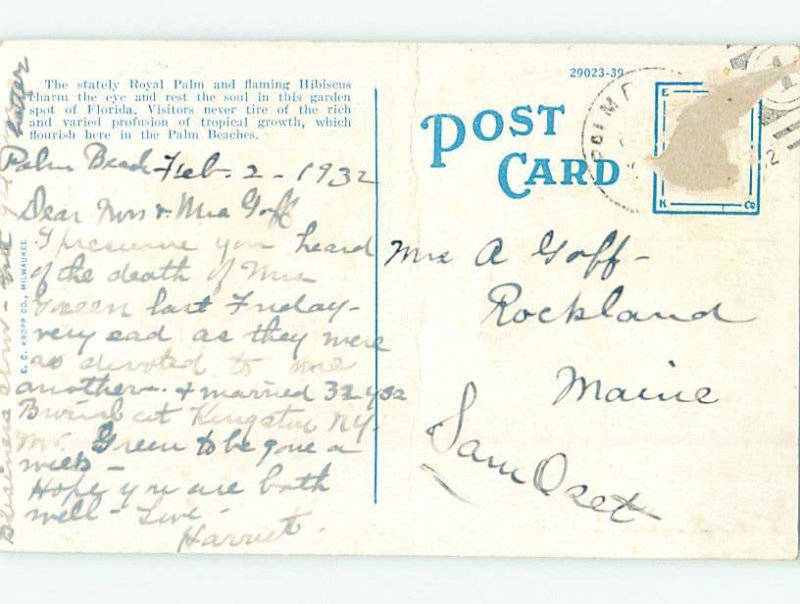 The stately Royal Palm and flaming Hibiscus
charm the eye and rest the soul in this garden
spot of Florida. Visitors never tire of the rich
and varied profusion of tropical growth, which
flourish here in the Palm Beaches.
Palm Beach Feb. 2 - 1932
Dear Mr & Mrs Goff
I presume you heard
of the death of Mrs
Green last Friday-
very sad as they were
so devoted to one
another. & married 32 yrs
Burial at Kingston N.Y.
Mr. Green to be gone a
week -
Hope you are both
well - Love -
Harriet.
Business slow -
E. C. KROPP CO., MILWAUKEE
29023-39
POST
CARD
E
K
Co
Mrs A Goff -
Rockland
Maine
SamOset